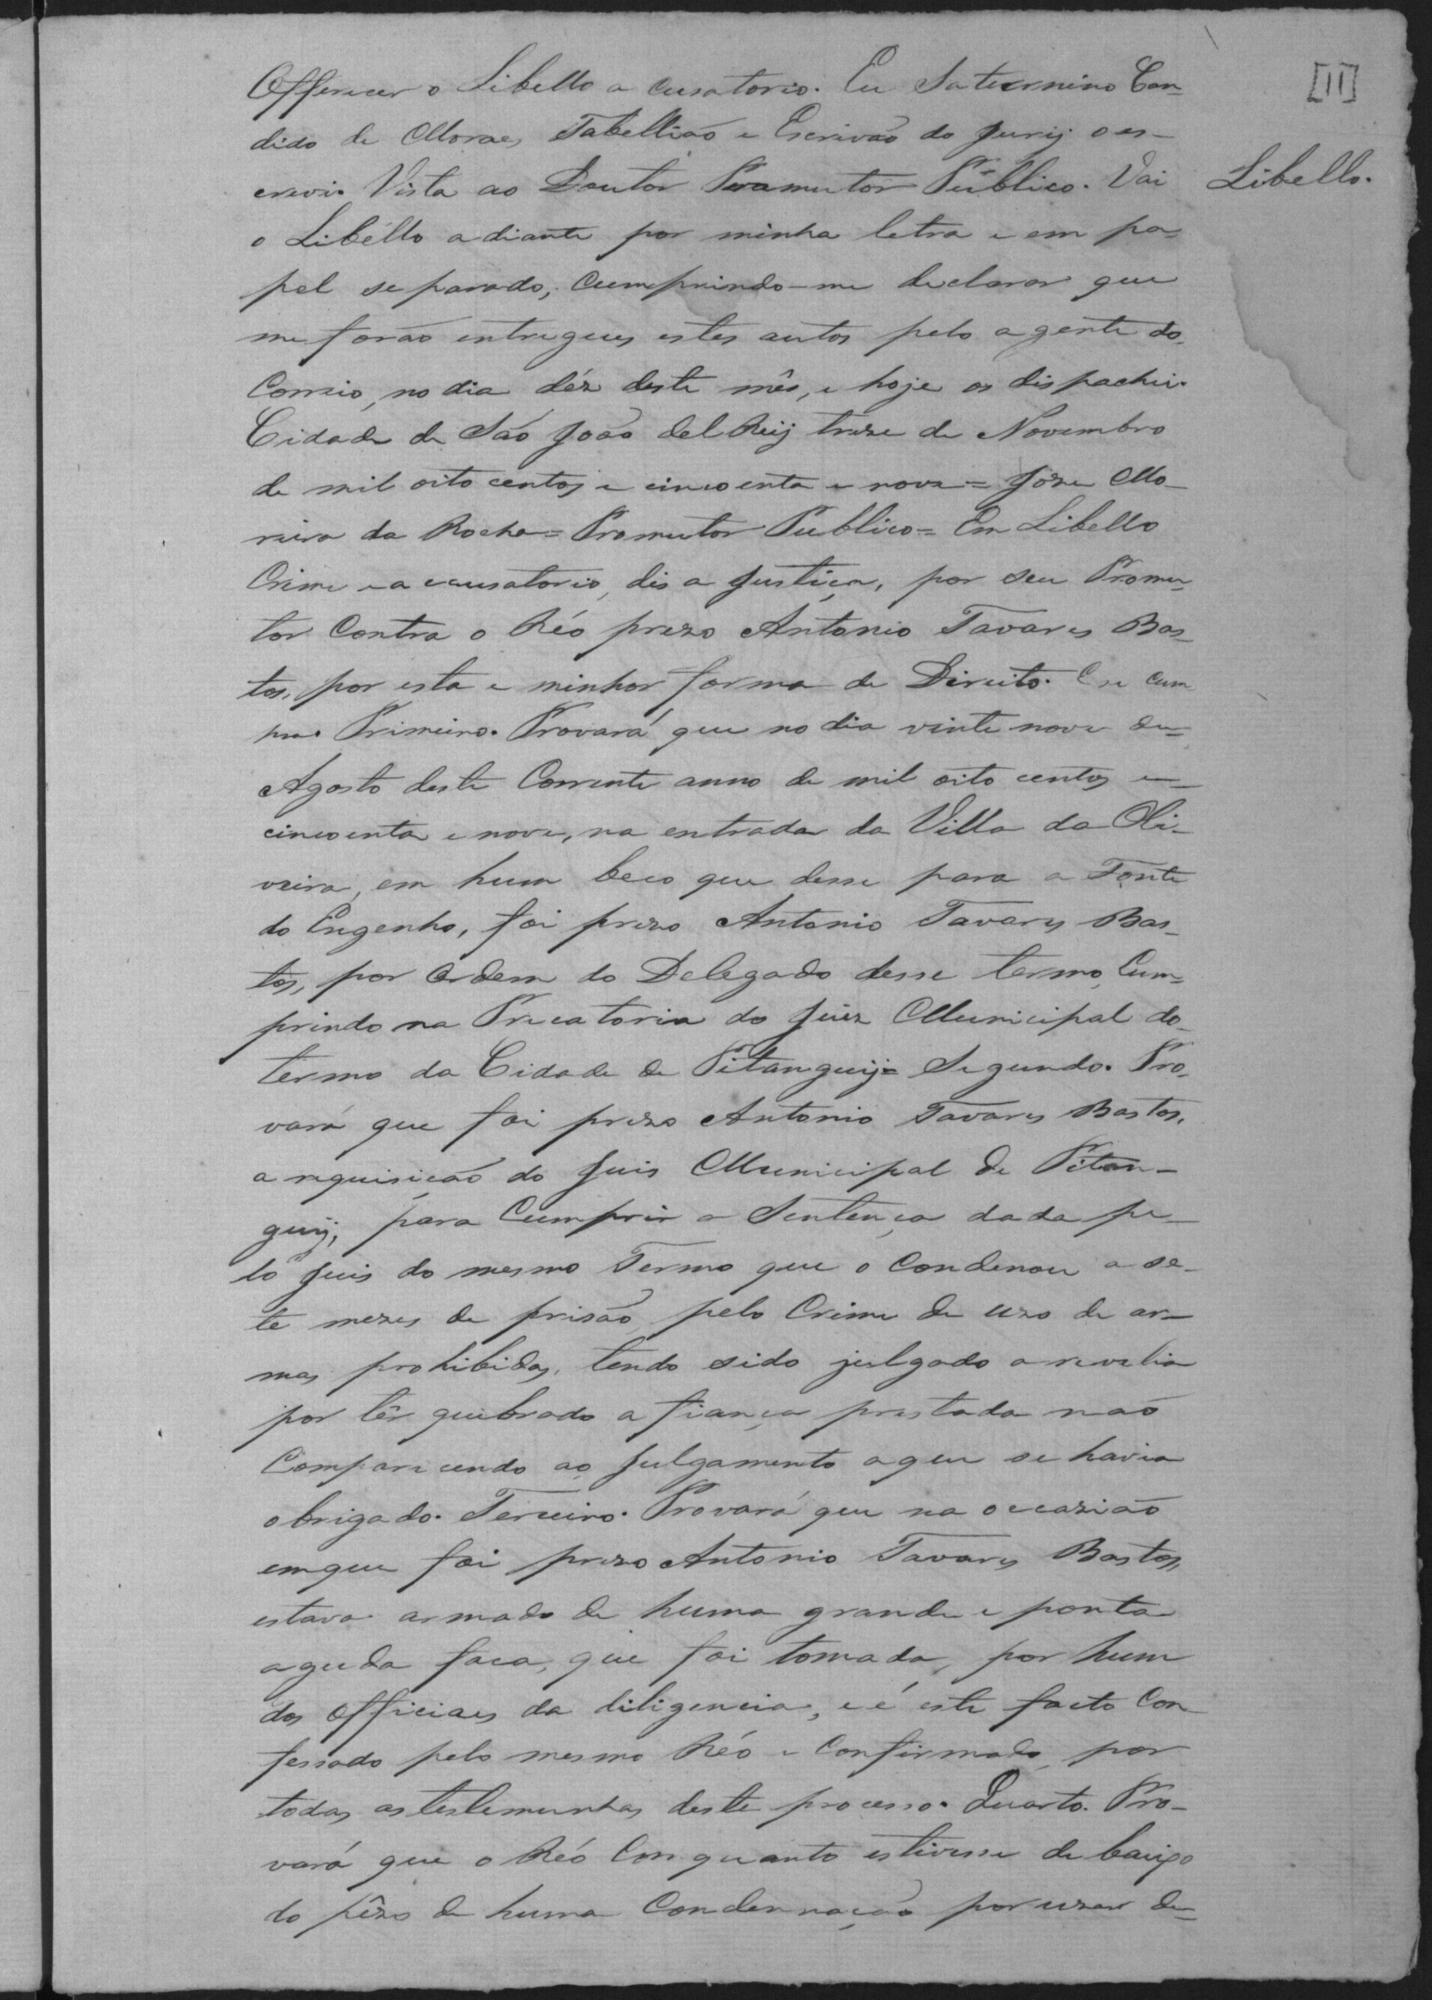 [11]
Offerecer o Libello a cusatorio. Eu Saturnino Can-
dido de Moraes, Tabellião e Escrivão do Jury o es-
crevi. Vista ao Doutor Promutor Publico. Vai
Libello.
o Libéllo adiante por minha letra e em pa-
pel separado, cumprindo-me declarar que
me forão entregues estes autos pelo agente do
Correio, no dia déz deste mês, e hoje os dispachei.
Cidade de São João del Reij treze de Novembro
de mil oito centos e cincoenta e nove = Joze Mo-
reira da Rocha = Promutor Publico = Em Libello
Crime e a ccusatorio, dis a Justiça, por seu Promu-
tor Contra o Réo prezo Antonio Tavares Bas-
tos, por esta e minhor forma de Direito. E se cum
pre. Primeiro. Provará que no dia vinte nove de
Agosto deste Corrente anno de mil oito centos e
cincoenta e nove, na entrada da Villa da Oli-
veira, em hum beco que desse para a Fonte
do Engenho, foi prezo Antonio Tavares Bas-
tos, por ordem do Delegado desse termo, Cum-
prindo na Precatoria do Juiz Municipal do
termo da Cidade de Pitanguij = Segundo. Pro-
vará que foi prezo Antonio Tavares Bastos,
a requisicão do Juis Municipal de Pitan-
guij, para Cumprir a Sentença dada pe-
lo Juis do mesmo Termo que o Condenou a se-
te mezes de prisão pelo Crime de uzo de ar-
mas prohibidas, tendo sido julgado a revelia
por têr quebrado a fiança prestada não
Comparecendo ao Julgamento a que se havia
obrigado. Terceiro. Provará que na occazião
em que foi prezo Antonio Tavares Bastos,
estava armado de huma grande e ponta
aguda faca, que foi tomada, por hum
dos officiaes da diligencia, e é este facto Con
fessado pelo mesmo Réo e Confirmado por
todas as testemunhas deste processo. Quarto. Pro-
vará que o Réo Conquanto estivesse de baixo
do pêzo de huma Condennação por uzar de